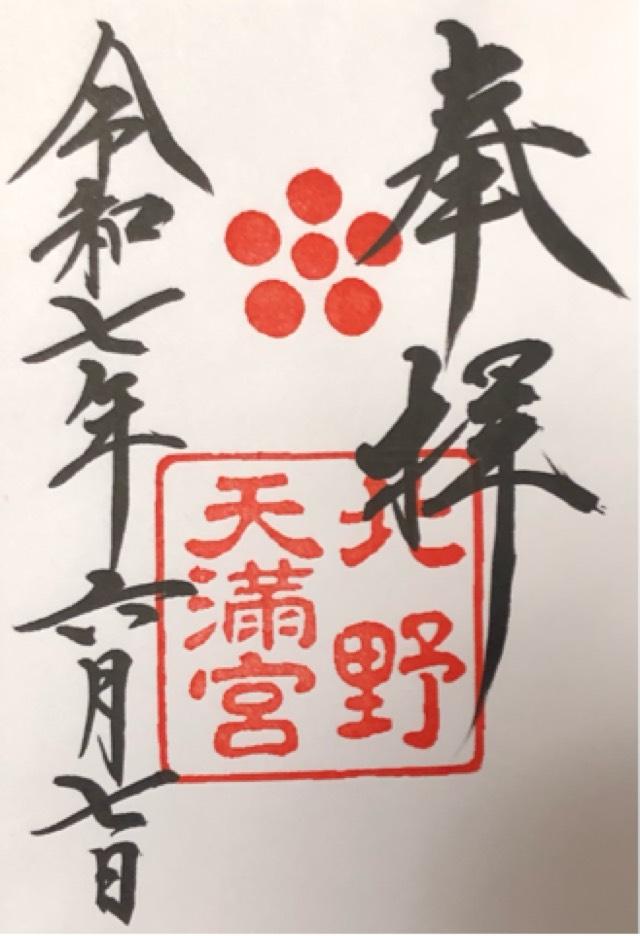 奉拝
北野
天満宮
令和七年六月七日